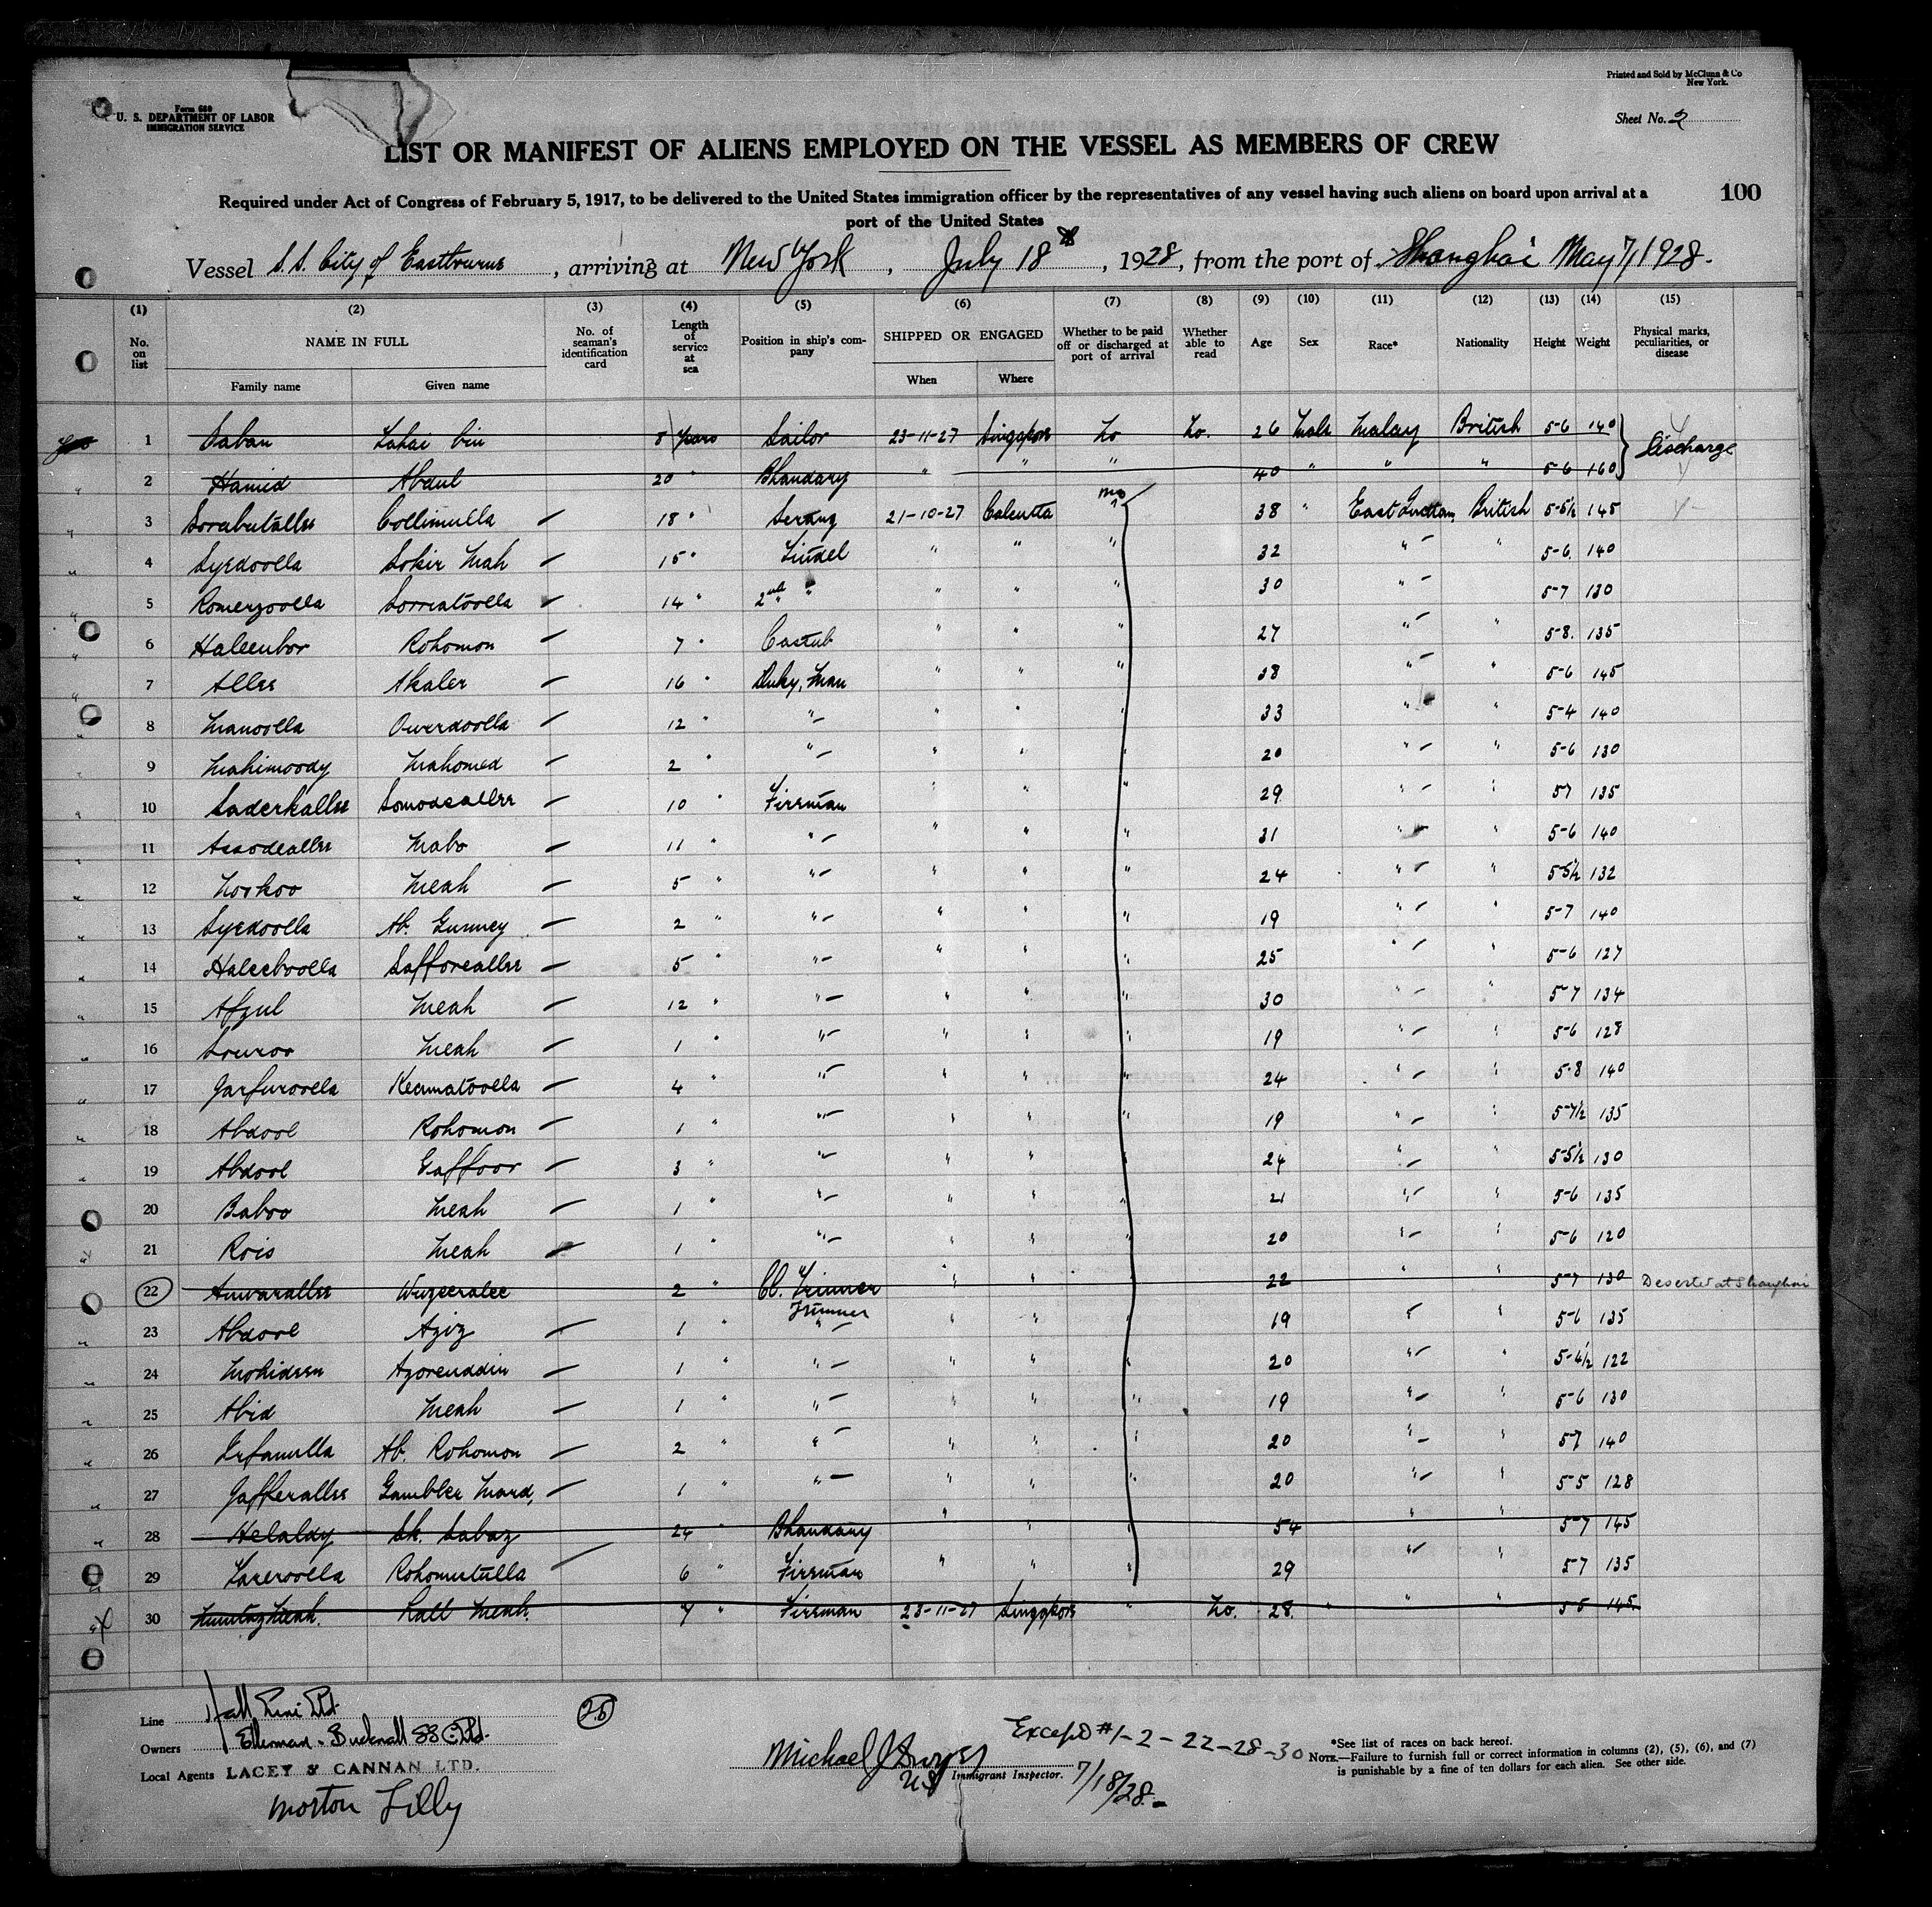 Printed and Sold by McClunn & Co
New York.
Form 680
U. S. DEPARTMENT OF LABOR
IMMIGRATION SERVICE
Sheet No. 2
LIST OR MANIFEST OF ALIENS EMPLOYED ON THE VESSEL AS MEMBERS OF CREW
Required under Act of Congress of February 5, 1917, to be delivered to the United States immigration officer by the representatives of any vessel having such aliens on board upon arrival at a
port of the United States
100
Vessel S.S. City of Eastbourne, arriving at New York, July 18th, 1928, from the port of Shanghai May 7, 1928.
(1) (2) (3) (4) (5) (6) (7) (8) (9) (10) (11) (12) (13) (14) (15)
No. on list NAME IN FULL No. of seaman's identification card Length of service at sea Position in ship's company SHIPPED OR ENGAGED Whether to be paid off or discharged at port of arrival Whether able to read Age Sex Race* Nationality Height Weight Physical marks, peculiarities, or disease
Family name Given name When Where
1 Saban Lahai bin 8 years Sailor 23-11-27 Singapore No No. 26 Male Malay British 5-6 140 Discharge
2 Hamid Abdul 20 " Bhandary " " " 40 " " " 5-6 160
3 Sorabutallee Collimulla 18 " Serang 21-10-27 Calcutta no 38 " East Indian British 5-5½ 145
4 Syedoolla Sokir Meah 15 " Tindel " " " 32 " " 5-6 140
5 Romerzoolla Sorratoolla 14 " 2nd " " " " 30 " 5-7 130
6 Haleenbor Rohomon 7 " Cassub " " " 27 " " 5-8 135
7 Allee Akaler 16 " Dnky. Man " " 38 " " 5-6 145
8 Manoolla Owerdoolla 12 " " " " " 33 " " 5-4 140
9 Mahimoody Mahomed 2 " " " " " 20 " " 5-6 130
10 Saderkallee Somodeallee 10 " Fireman " " " 29 " " 5 7 135
11 Assodeallee Mabo 11 " " " " " 31 " " 5-6 140
12 Noskoo Meah 5 " " " " " 24 " " 5-5½ 132
13 Syedoolla Ab. Gunney 2 " " " " " 19 " " 5-7 140
14 Haleeboolla Safforeallee 5 " " " " " 25 " " 5-6 127
15 Afzul Meah 12 " " " " " 30 " " 5-7 134
16 Souroo Meah 1 " " " " " 19 " " 5-6 128
17 Garfuroolla Keamatoolla 4 " " " " " 24 " " 5-8 140
18 Abdool Rohomon 1 " " " " " 19 " " 5-7½ 135
19 Abdool Gaffoor 3 " " " " " 24 " " 5-5½ 130
20 Baboo Meah 1 " " " " " 21 " " 5-6 135
21 Rois Meah 1 " " " " " 20 " " 5-6 120
22 Anwarallee Wuzeeralee 2 " Cl. Trimmer " " " 22 " " 5-7 130 Deserted at Shanghai
Trimmer
23 Abdool Aziz 1 " " " " " 19 " " 5-6 135
24 Mohideen Azorenddin 1 " " " " " 20 " " 5-4½ 122
25 Abid Meah 1 " " " " " 19 " " 5-6 130
26 Irfanulla Ab. Rohomon 2 " " " " " 20 " " 5 7 140
27 Gafferallee Gambler Mard, 1 " " " " " 20 " " 5 5 128
28 Helaldy Sk. Sabaz 24 " Bhandary " " " 54 " " 5-7 145
29 Rohomutulla 6 " Fireman " " " 29 " " 5 7 135
30 Mumtaz Meah Lall Meah. 7 " Fireman 23-11-27 Singapore " No. 28 " " " 5 5 145
Line Hall Line Ltd
Owners Ellerman & Bucknall SS Co Ltd.
Local Agents LACEY & CANNAN LTD.
Morton Lilly
26
Michael J
US Immigrant Inspector.
Except #1-2-22-28-30
7/18/28
*See list of races on back hereof.
NOTE.—Failure to furnish full or correct information in columns (2), (5), (6), and (7)
is punishable by a fine of ten dollars for each alien. See other side.